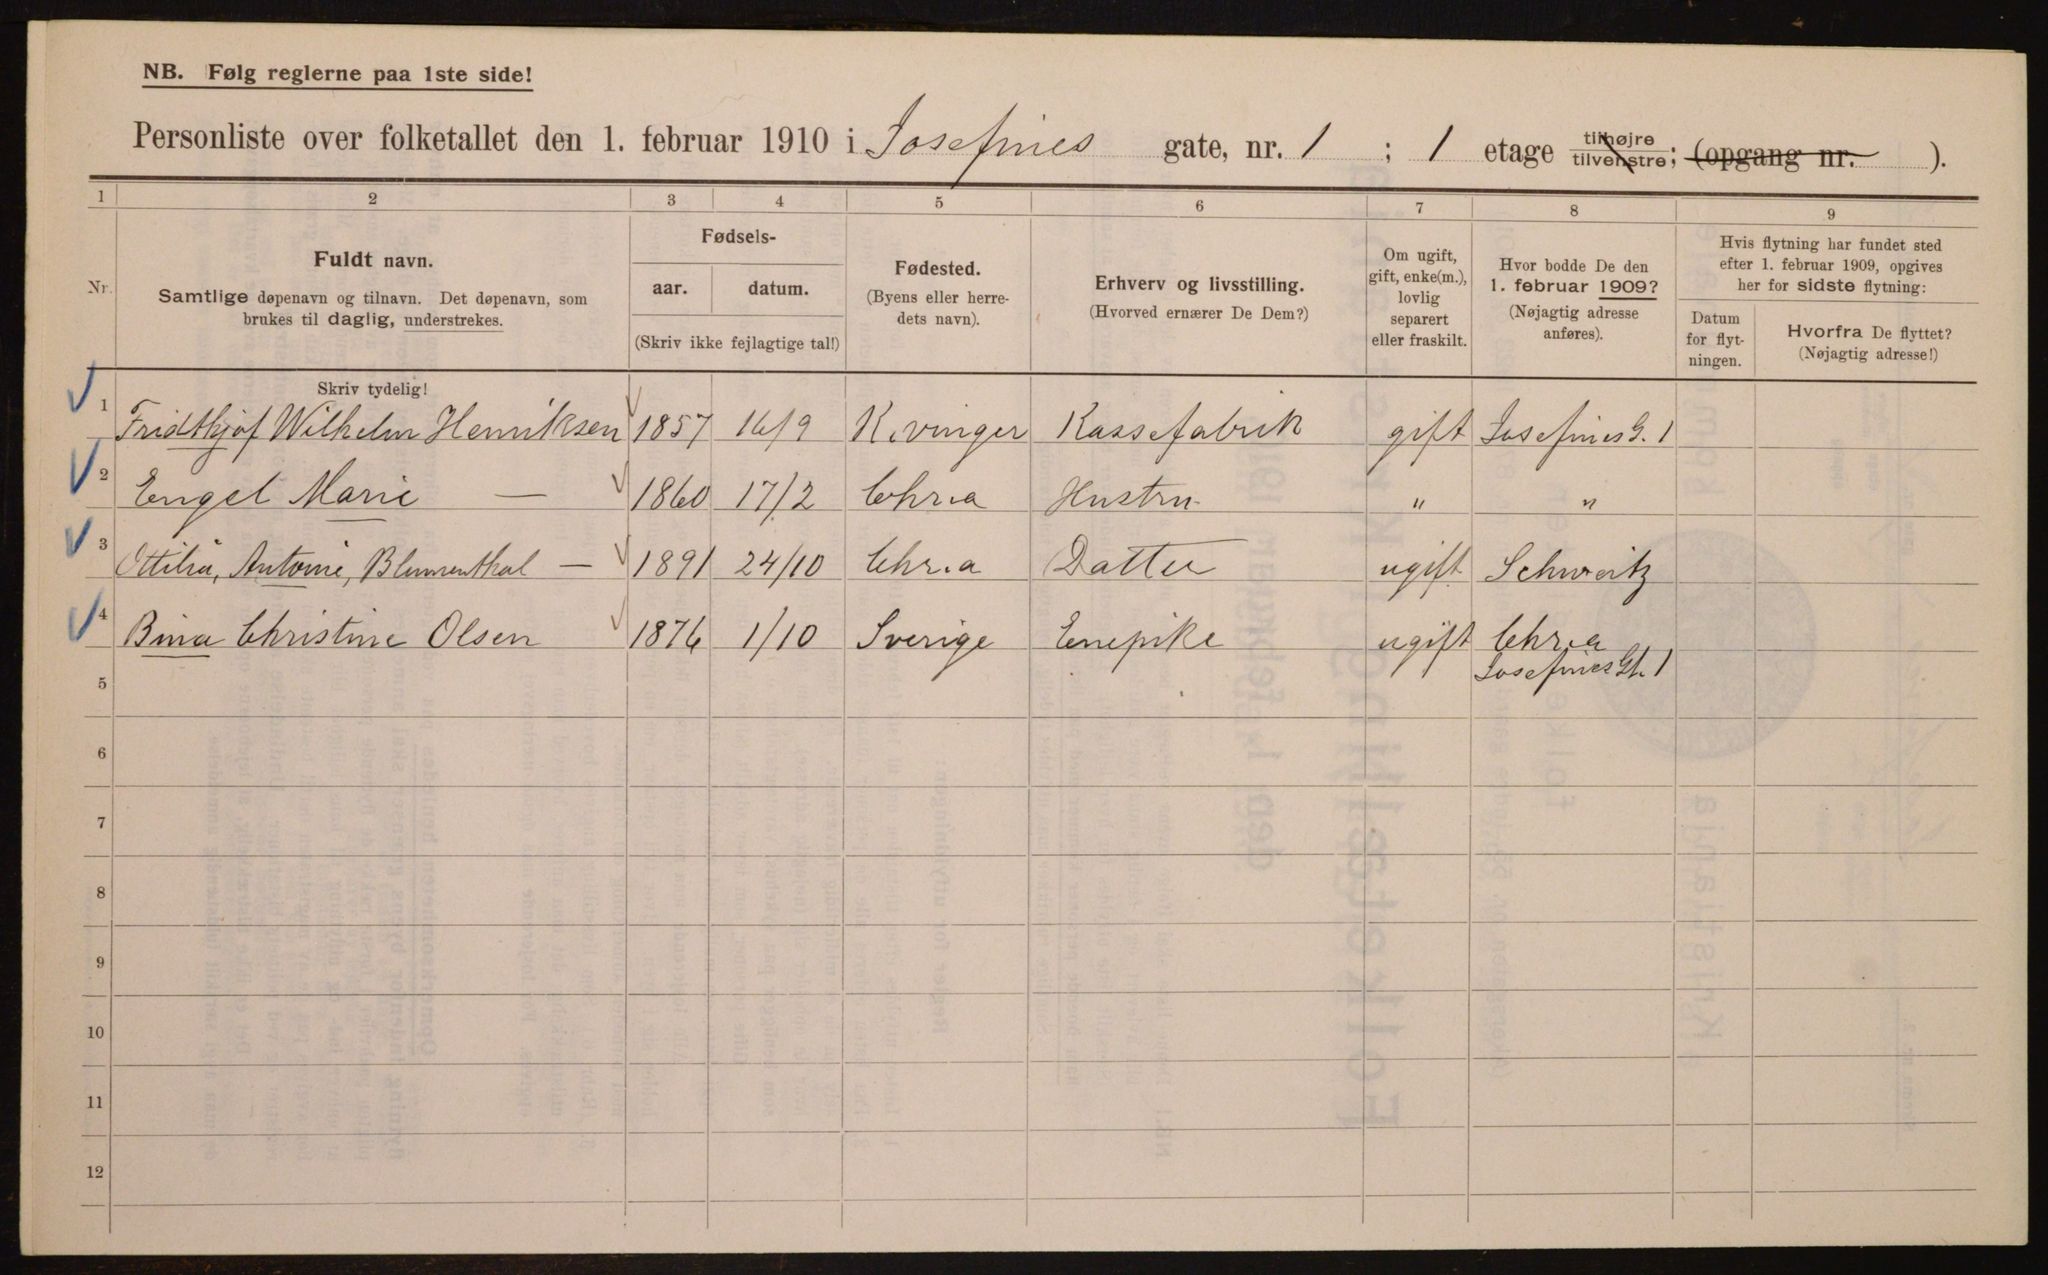 NB. Følg reglerne paa 1ste side!
Personliste over folketallet den 1. februar 1910 i Josefines gate, nr. 1 ; 1 etage tilhøjre tilvenstre; (opgang nr. ).
1 2 3 4 5 6 7 8 9
Nr.
Fuldt navn.
Samtlige døpenavn og tilnavn. Det døpenavn, som
brukes til daglig, understrekes.
Skriv tydelig!
Fødsels-
aar. datum.
(Skriv ikke fejlagtige tal!)
Fødested.
(Byens eller herre-
dets navn).
Erhverv og livsstilling.
(Hvorved ernærer De Dem?)
Om ugift,
gift, enke(m.),
lovlig
separert
eller fraskilt.
Hvor bodde De den
1. februar 1909?
(Nøjagtig adresse
anføres).
Hvis flytning har fundet sted
efter 1. februar 1909, opgives
her for sidste flytning:
Datum
for flyt-
ningen.
Hvorfra De flyttet?
(Nøjagtig adresse!)
1 Fridthjof Wilhelm Henriksen 1857 16/9 K.vinger Kassefabrik gift Josefines G. 1
2 Engel Marie — 1860 17/2 Chr.a Hustru " "
3 Ottilia, Antonie, Blumenthal — 1891 24/10 Chr.a Datter ugift Schweitz
4 Bina Christine Olsen 1876 1/10 Sverige Enepike ugift Chr.a
Josefines Gt. 1
5
6
7
8
9
10
11
12